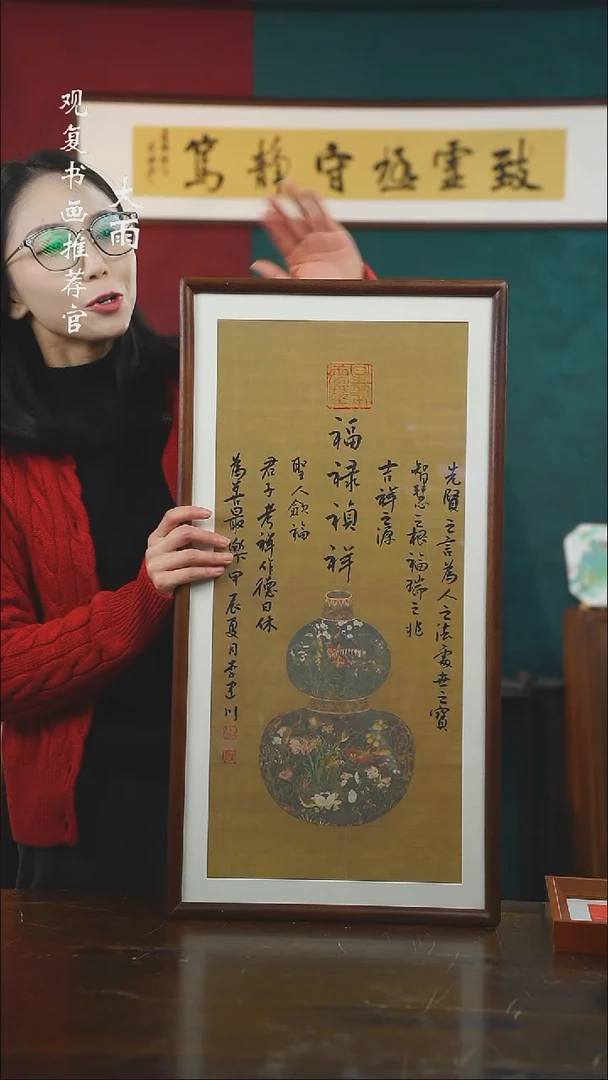 观复书画推荐官
大雨
致虚极守静笃
福禄祯祥
先贤之言为人之法处世之宝
智慧之根福瑞之兆
吉祥之源
聖人歛福
君子考祥作德日休
為善最樂甲辰夏月李建川